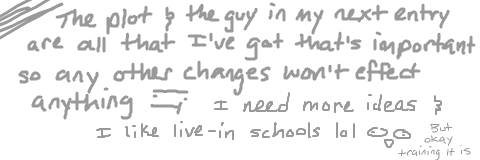 The plot & the guy in my next entry
are all that I've got that's important
so any other changes won't effect
anything I need more ideas &
I like live-in schools lal
But
okay
training it is